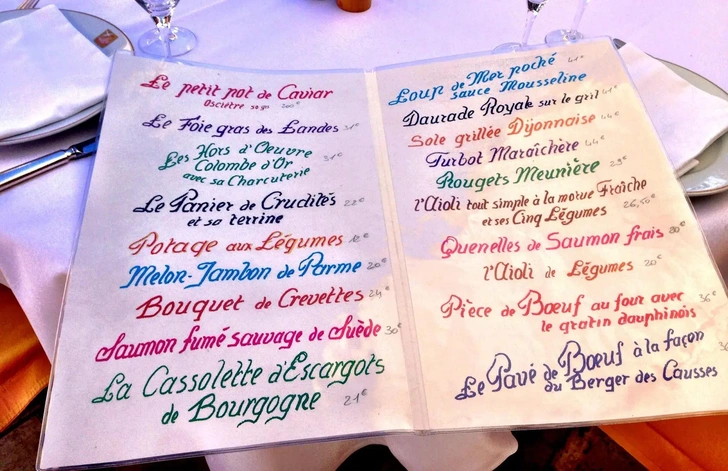 Le petit pot de Caviar
Osciètre 50 gr 200€
Le Foie gras des Landes 31€
Les Hors d'Oeuvre 31€
Colombe d'Or
avec sa Charcuterie
Le Panier de Crudités 22€
et sa terrine
Potage aux Légumes 12€
Melon-Jambon de Parme 20€
Bouquet de Crevettes 24€
Saumon fumé sauvage de Suède 30€
La Cassolette d'Escargots
de Bourgogne 21€
Loup de Mer poché 41€
sauce Mousseline
Daurade Royale sur le gril 41€
Sole grillée Dijonnaise 44€
Turbot Maraîchère 44€
Rougets Meunière 29€
l'Aïoli tout simple à la morue Fraîche
et ses Cinq Légumes 26,50€
Quenelles de Saumon frais 20€
l'Aïoli de Légumes 20€
Pièce de Bœuf au four avec 36€
le gratin dauphinois
Le Pavé de Bœuf à la façon
du Berger des Causses